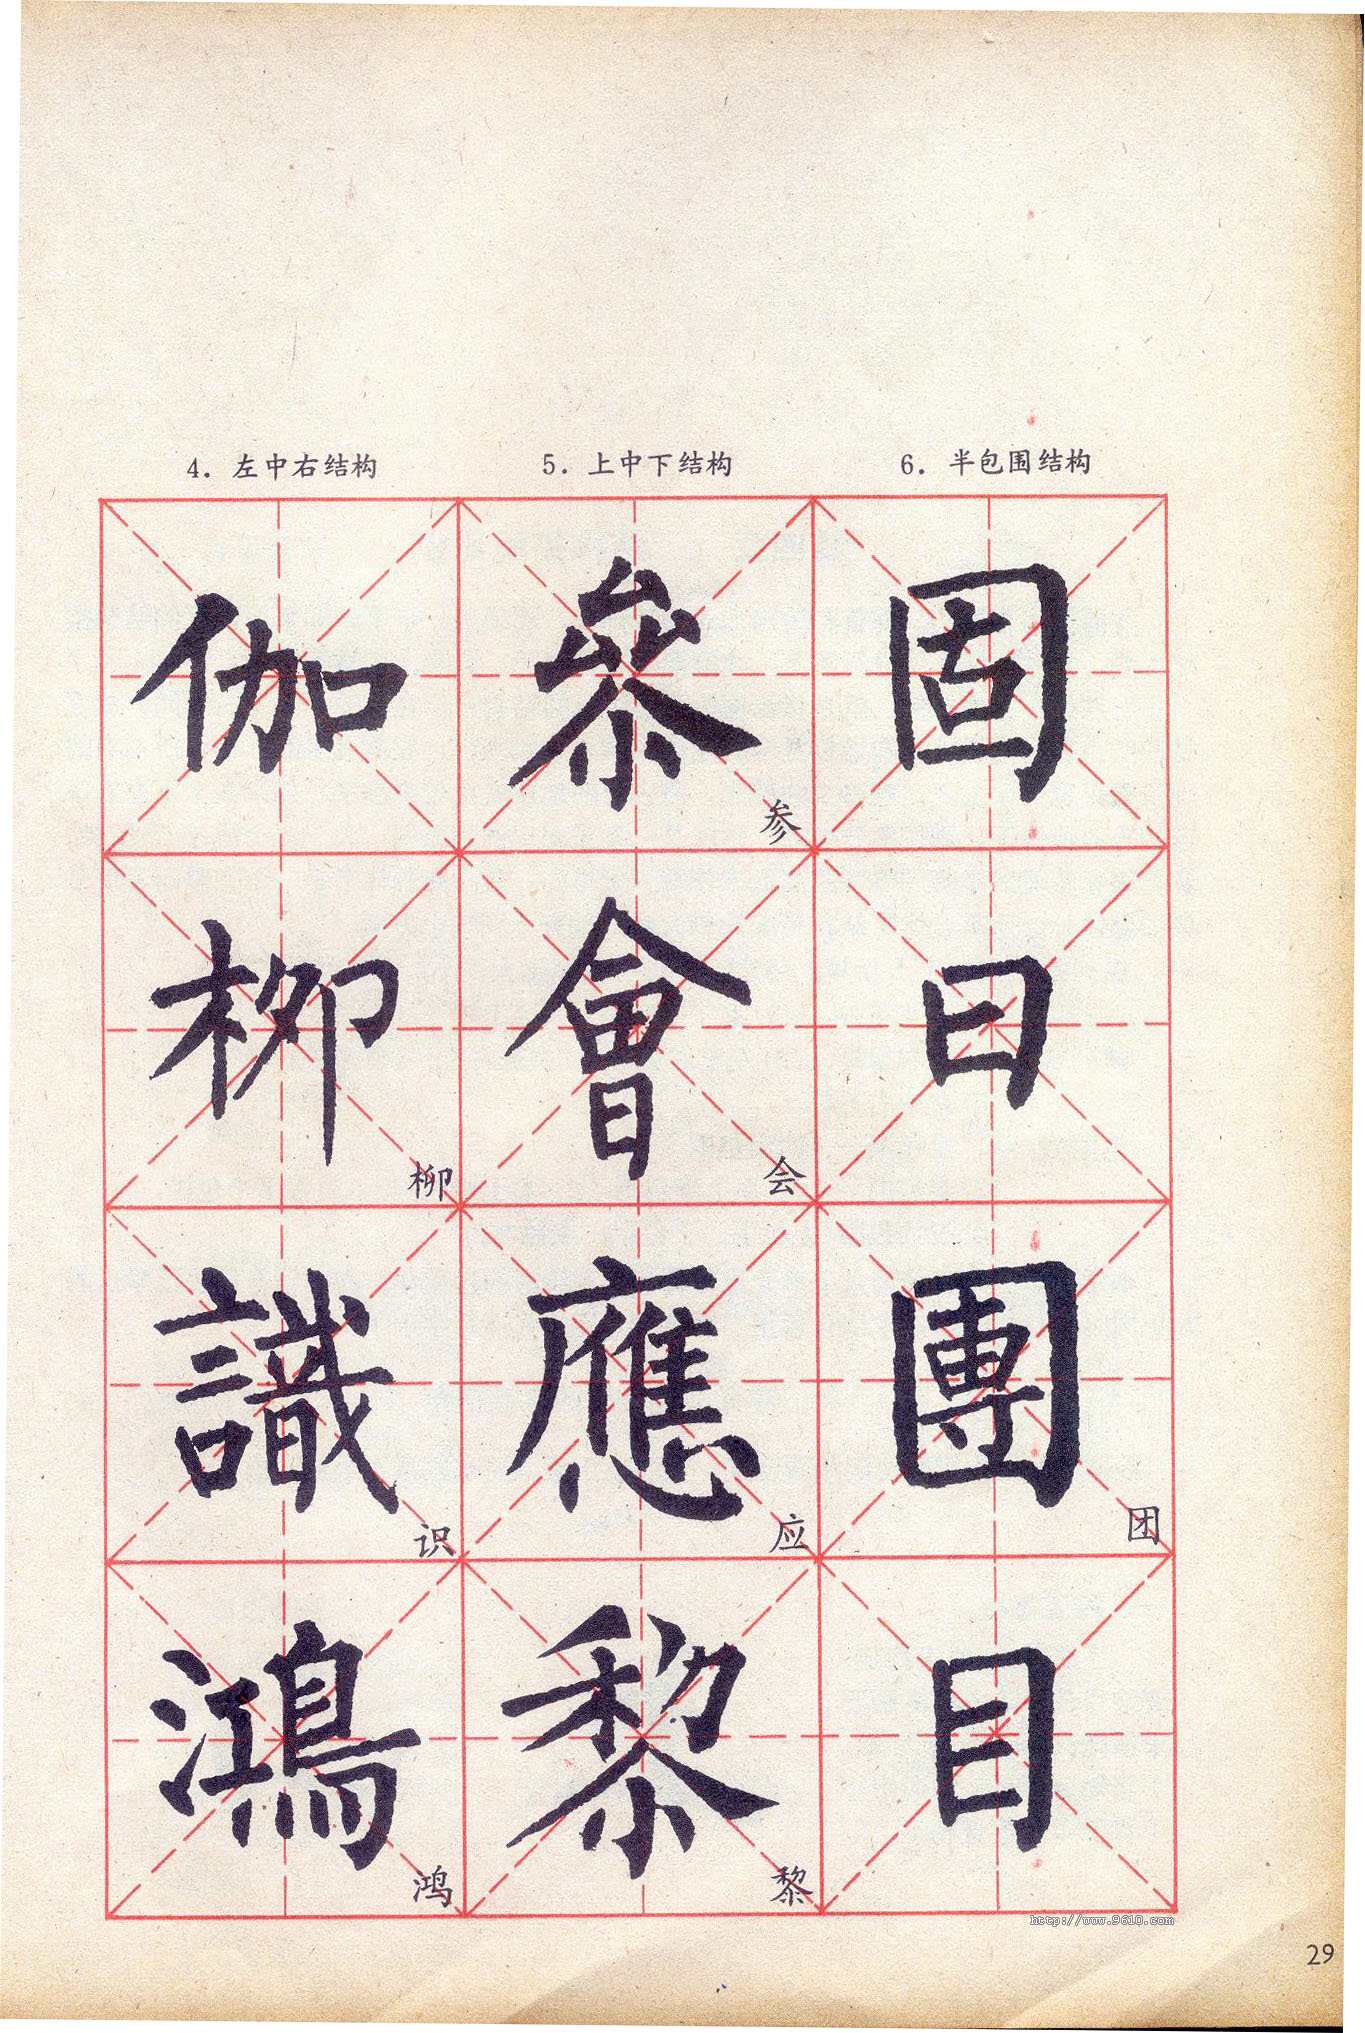 4. 左中右结构 5. 上中下结构 6. 半包围结构
伽 參 参 固
柳 柳 會 会 日
識 识 應 应 團 团
鴻 鸿 黎 黎 目
http://www.9610.com
29